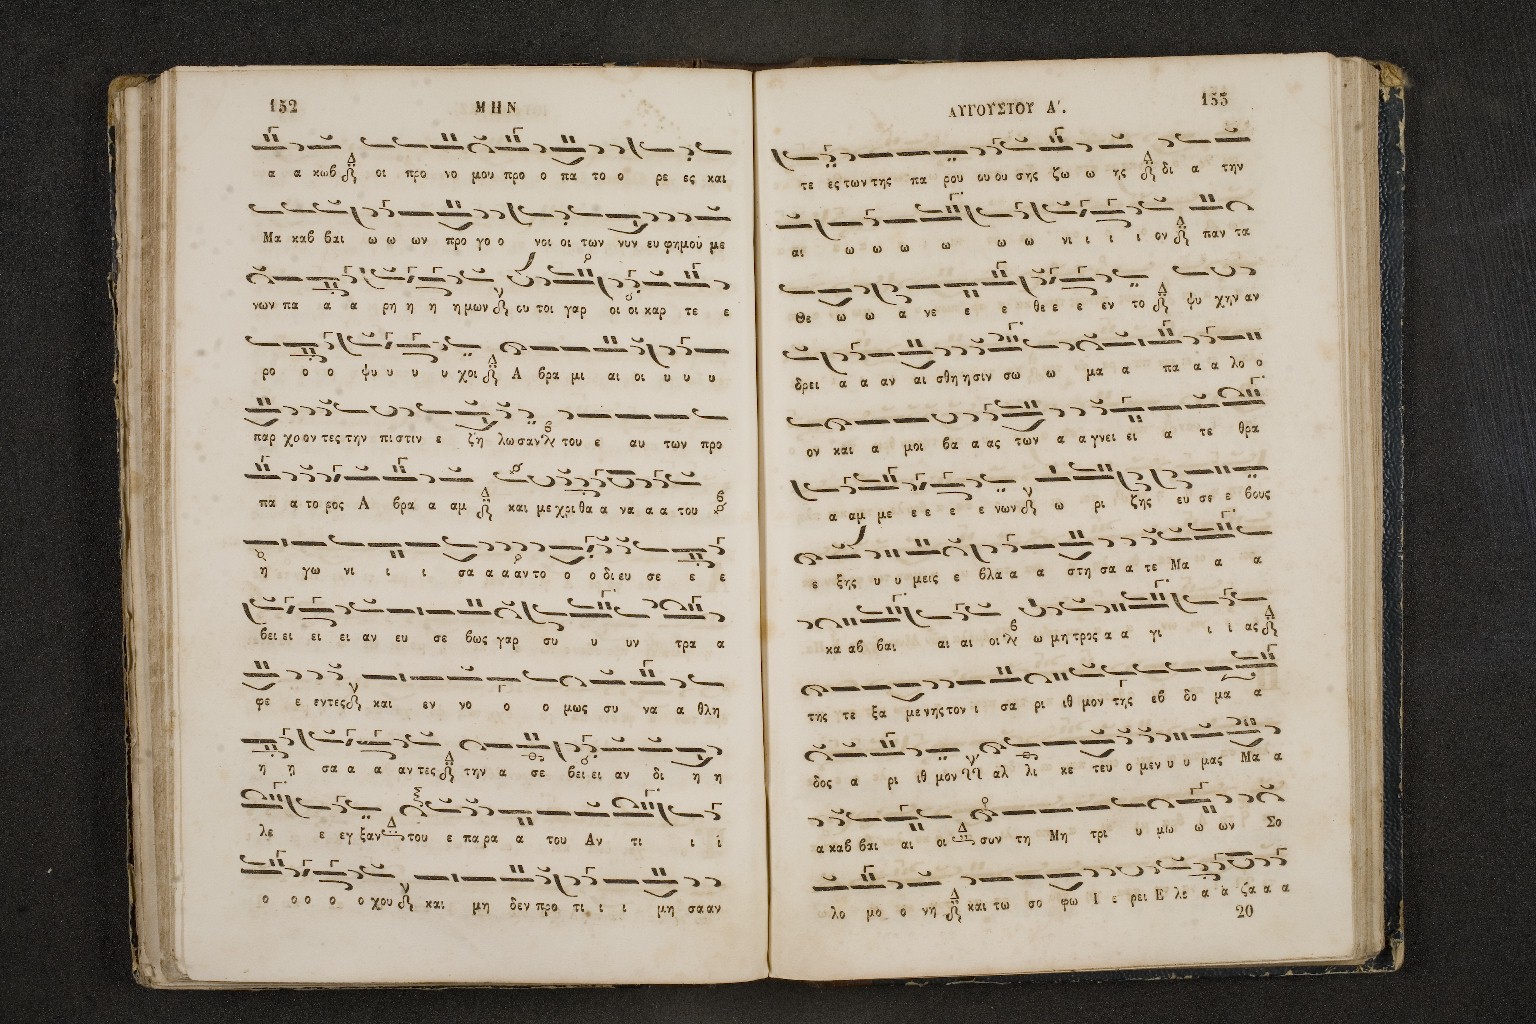 152 ΜΗΝ
α α κωβ οι προ νο μου προ ο πα το ο ρε ες και
Μα καβ βαι ω ω ων προ γο ο νοι οι των νυν ευ φημού με
νων πα α α ρη η η η μων ου τοι γαρ οι οι καρ τε ε
ρο ο ο ψυ υ υ υ χοι Α βρα μι αι οι υ υ υ
παρ χο ον τες την πι στιν ε ζη λω σαν του ε αυ των προ
πα α το ρος Α βρα α αμ και με χρι θα α να α α του
η γω νι ι ι σα α α αν το ο ο δι ευ σε ε ε
βει ει ει ει αν ευ σε βως γαρ συ υ υν τρα α
φε ε εν τες και εν νο ο ο μως συ να α θλη
η η σα α α αν τες την α σε βει ει αν δι η η
λε ε εγ ξαν του ε πα ρα α του Αν τι ι ι
ο ο ο ο ο χου και μη δεν προ τι ι ι μη σα αν
ΑΥΓΟΥΣΤΟΥ Α΄. 153
τε ες των της πα ρου ου ου σης ζω ω ης δι α την
αι ω ω ω ω ω ω νι ι ι ι ον παν τα
Θε ω ω α νε ε ε θε ε ε εν το ψυ χην αν
δρει α α αν αι σθη η σιν σω ω μα α πα α α λο ο
ον και α μοι βα α ας των α α γνει ει α τε θρα
α αμ με ε ε ε ε νων ω ρι ζης ευ σε ε βους
ε ξης υ υ μεις ε βλα α α στη σα α τε Μα α α
κα αβ βαι αι αι οι ω μη τρος α α γι ι ι ας
της τε ξα με νης τον ι σα ρι ιθ μον της εβ δο μα α
δος α ρι ιθ μον αλ λι κε τευ ο μεν υ υ μας Μα α
α καβ βαι αι οι συν τη Μη τρι υ μω ω ων Σο
λο μο ο νη και τω σο φω Ι ε ρει Ε λε α α ζα α α
20